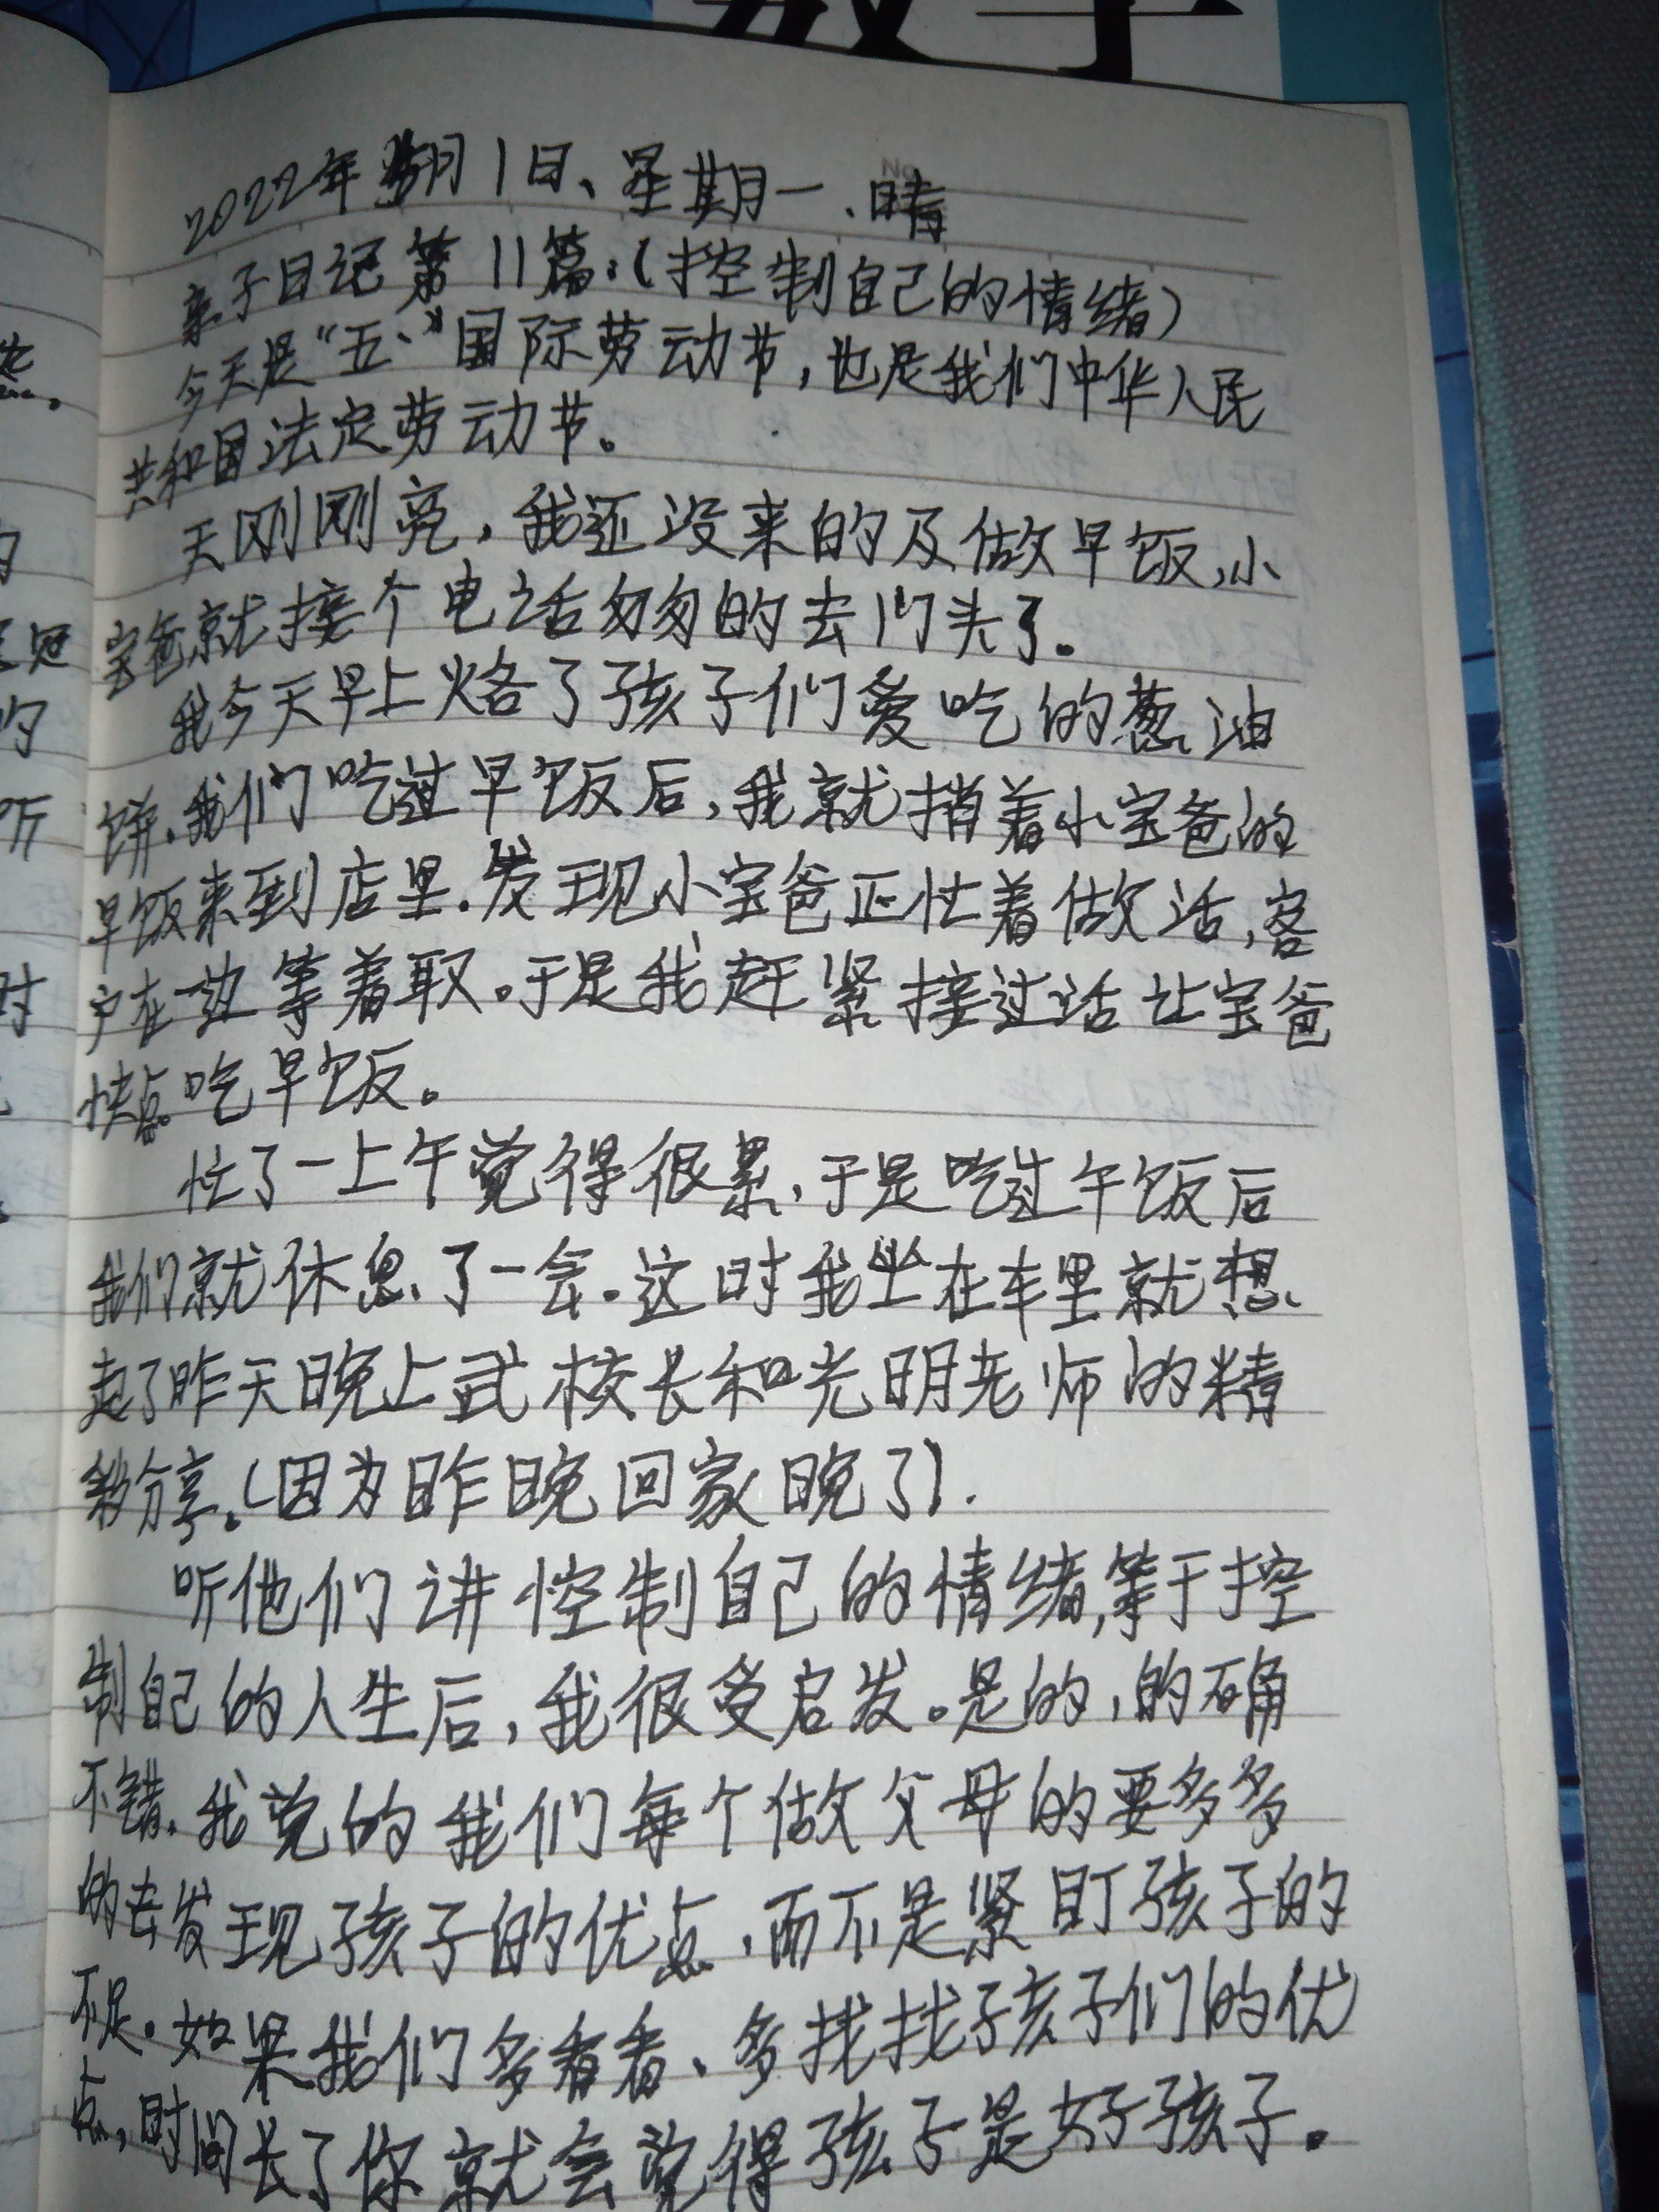 数学
2022年5月1日、星期一、晴
亲子日记第11篇:(控制自己的情绪)
今天是“五一”国际劳动节,也是我们中华人民
共和国法定劳动节。
天刚刚亮,我还没来的及做早饭,小
宝爸就接个电话匆匆的去门头了。
我今天早上烙了孩子们爱吃的葱油
饼.我们吃过早饭后,我就捎着小宝爸的
早饭来到店里.发现小宝爸正忙着做活,客
户在一边等着取。于是我赶紧接过活让宝爸
快点吃早饭。
忙了一上午觉得很累、于是吃过午饭后
我们就休息了一会。这时我坐在车里就想
起了昨天晚上武校长和光明老师的精
彩分享。(因为昨晚回家晚了).
听他们讲控制自己的情绪,等于控
制自己的人生后,我很受启发。是的,的确
不错.我觉的我们每个做父母的要多多
的去发现孩子的优点,而不是紧盯孩子的
不足。如果我们多看看、多找找孩子们的优
点,时间长了你就会觉得孩子是好孩子。